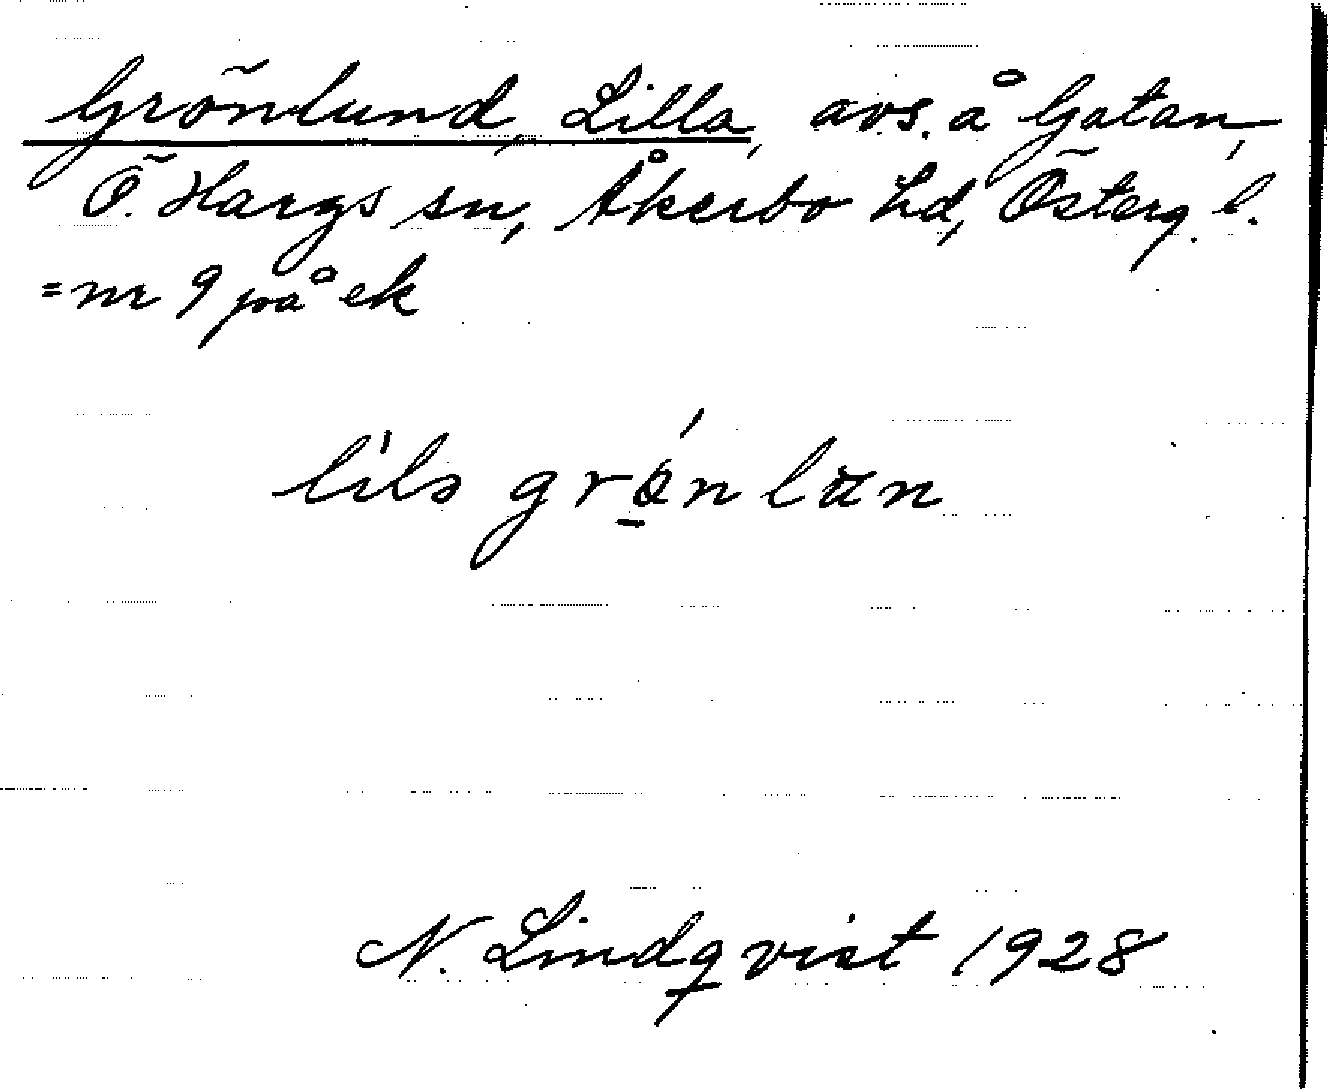 Grönlund, Lilla, avs. å Gatan,
Ö. Hargs sn, Åkerbo hd, Österg. l.
= nr 9 på ek
N. Lindqvist 1928